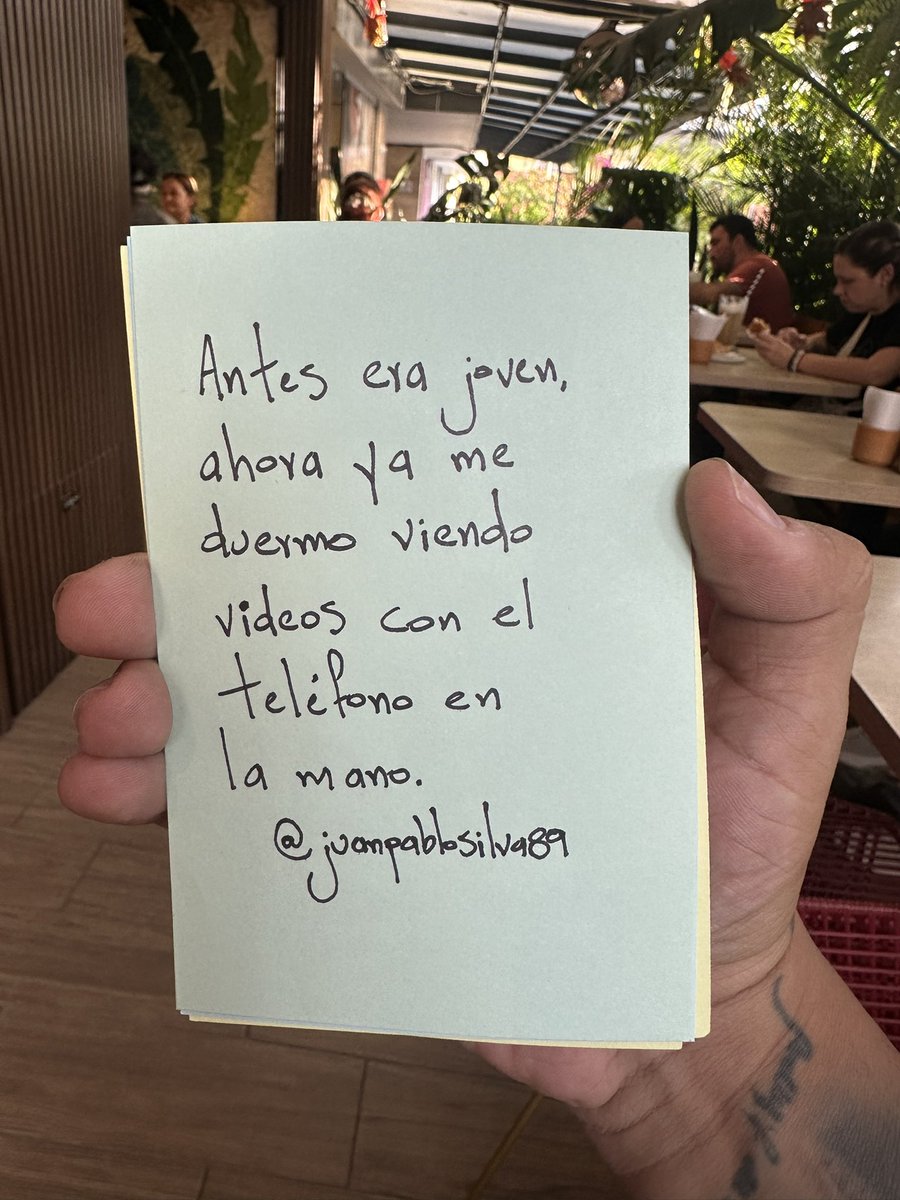 Antes era joven,
ahora ya me
duermo viendo
videos con el
teléfono en
la mano.
@juanpablosilva89